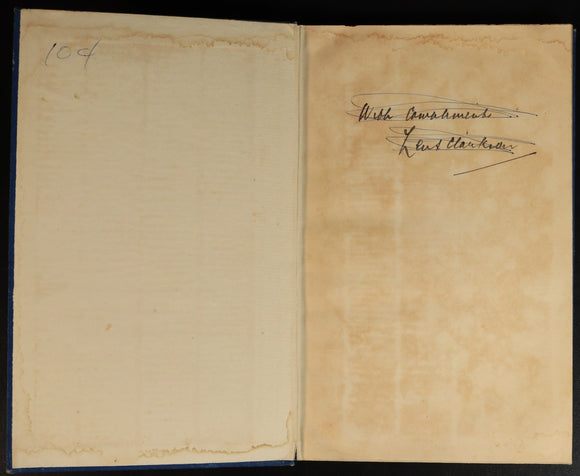 104
With Compliments
Clarkson